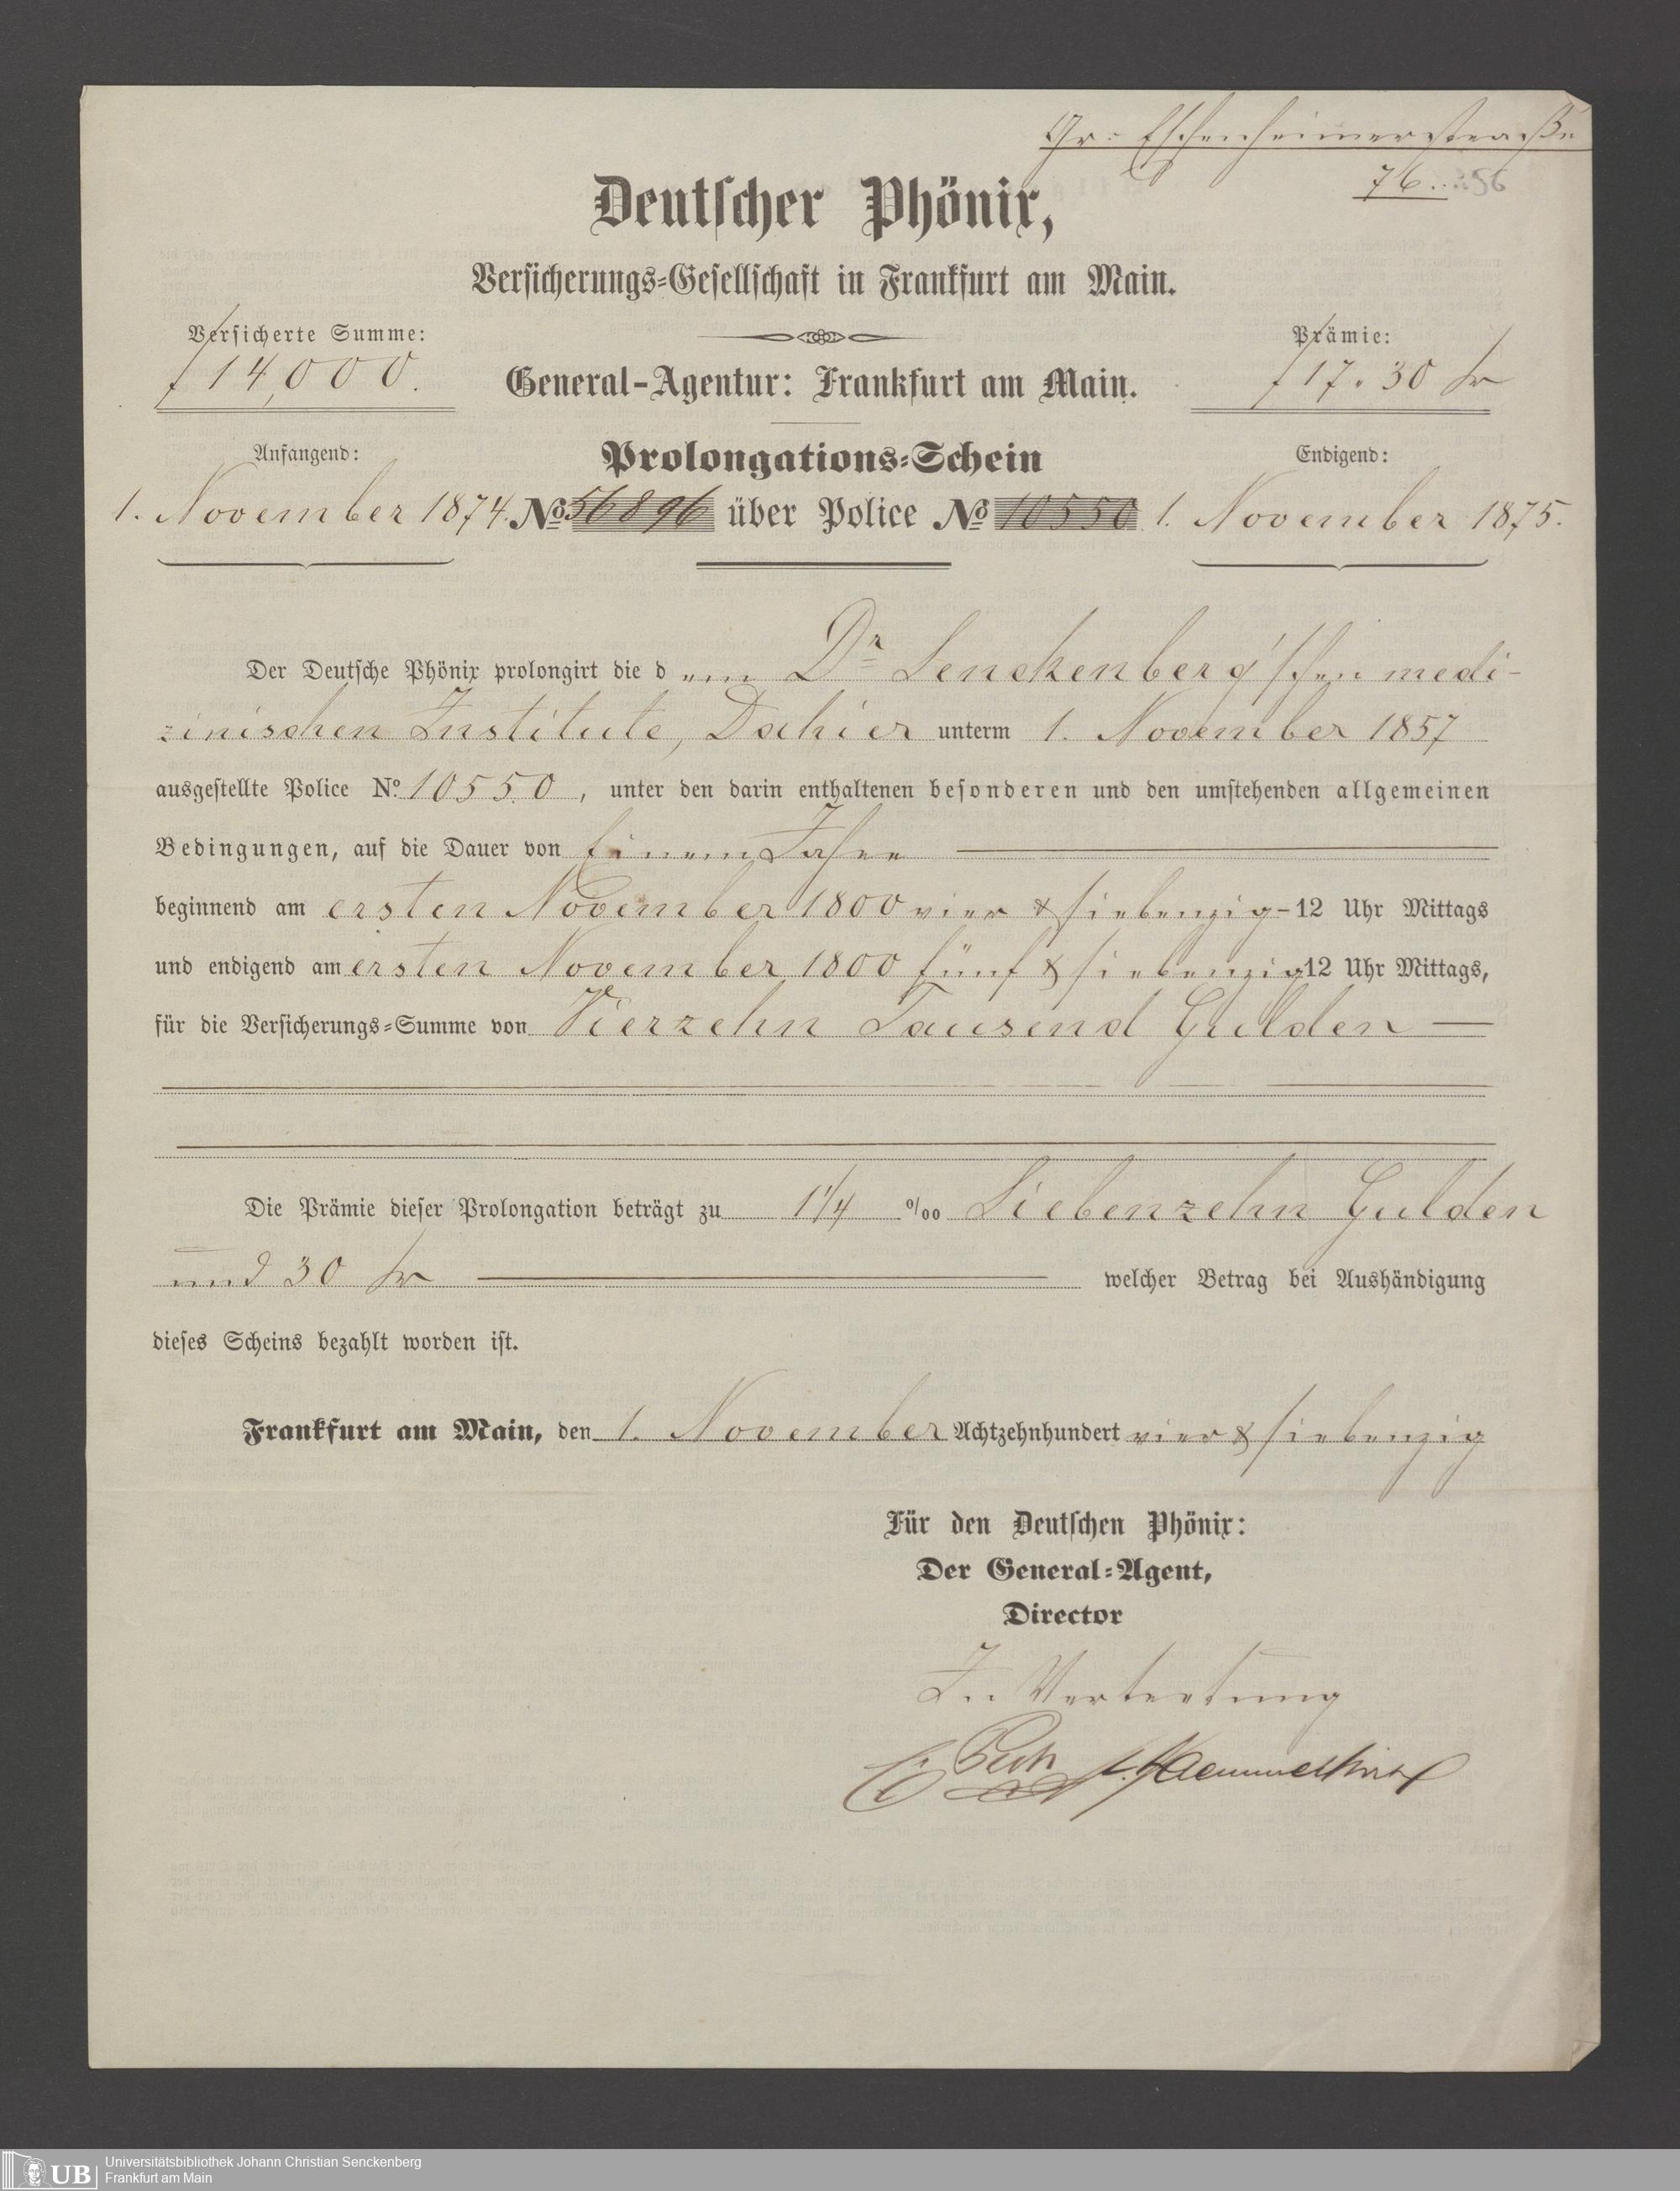 Gr. Eschenheimerstraße
76. 56
Deutscher Phönix,
Versicherungs-Gesellschaft in Frankfurt am Main.
Versicherte Summe:
f 14,000.
General-Agentur: Frankfurt am Main.
Prämie:
f 17. 30 kr
Anfangend:
Prolongations-Schein
Endigend:
1. November 1874. No 56896 über Police No 10550 1. November 1875.
Der Deutsche Phönix prolongirt die dem Dr Senckenberg'schen medi-
zinischen Institute, Dahier unterm 1. November 1857
ausgestellte Police No. 10550, unter den darin enthaltenen besonderen und den umstehenden allgemeinen
Bedingungen, auf die Dauer von Einem Jahre
beginnend am ersten November 1800 vier & siebenzig - 12 Uhr Mittags
und endigend am ersten November 1800 fünf & siebenzig 12 Uhr Mittags,
für die Versicherungs-Summe von Vierzehn Tausend Gulden —
Die Prämie dieser Prolongation beträgt zu 1 1/4 0/00 Siebenzehn Gulden
und 30 kr welcher Betrag bei Aushändigung
dieses Scheins bezahlt worden ist.
Frankfurt am Main, den 1. November Achtzehnhundert vier & siebenzig
Für den Deutschen Phönix:
Der General-Agent,
Director
In Vertretung
UB
Universitätsbibliothek Johann Christian Senckenberg
Frankfurt am Main